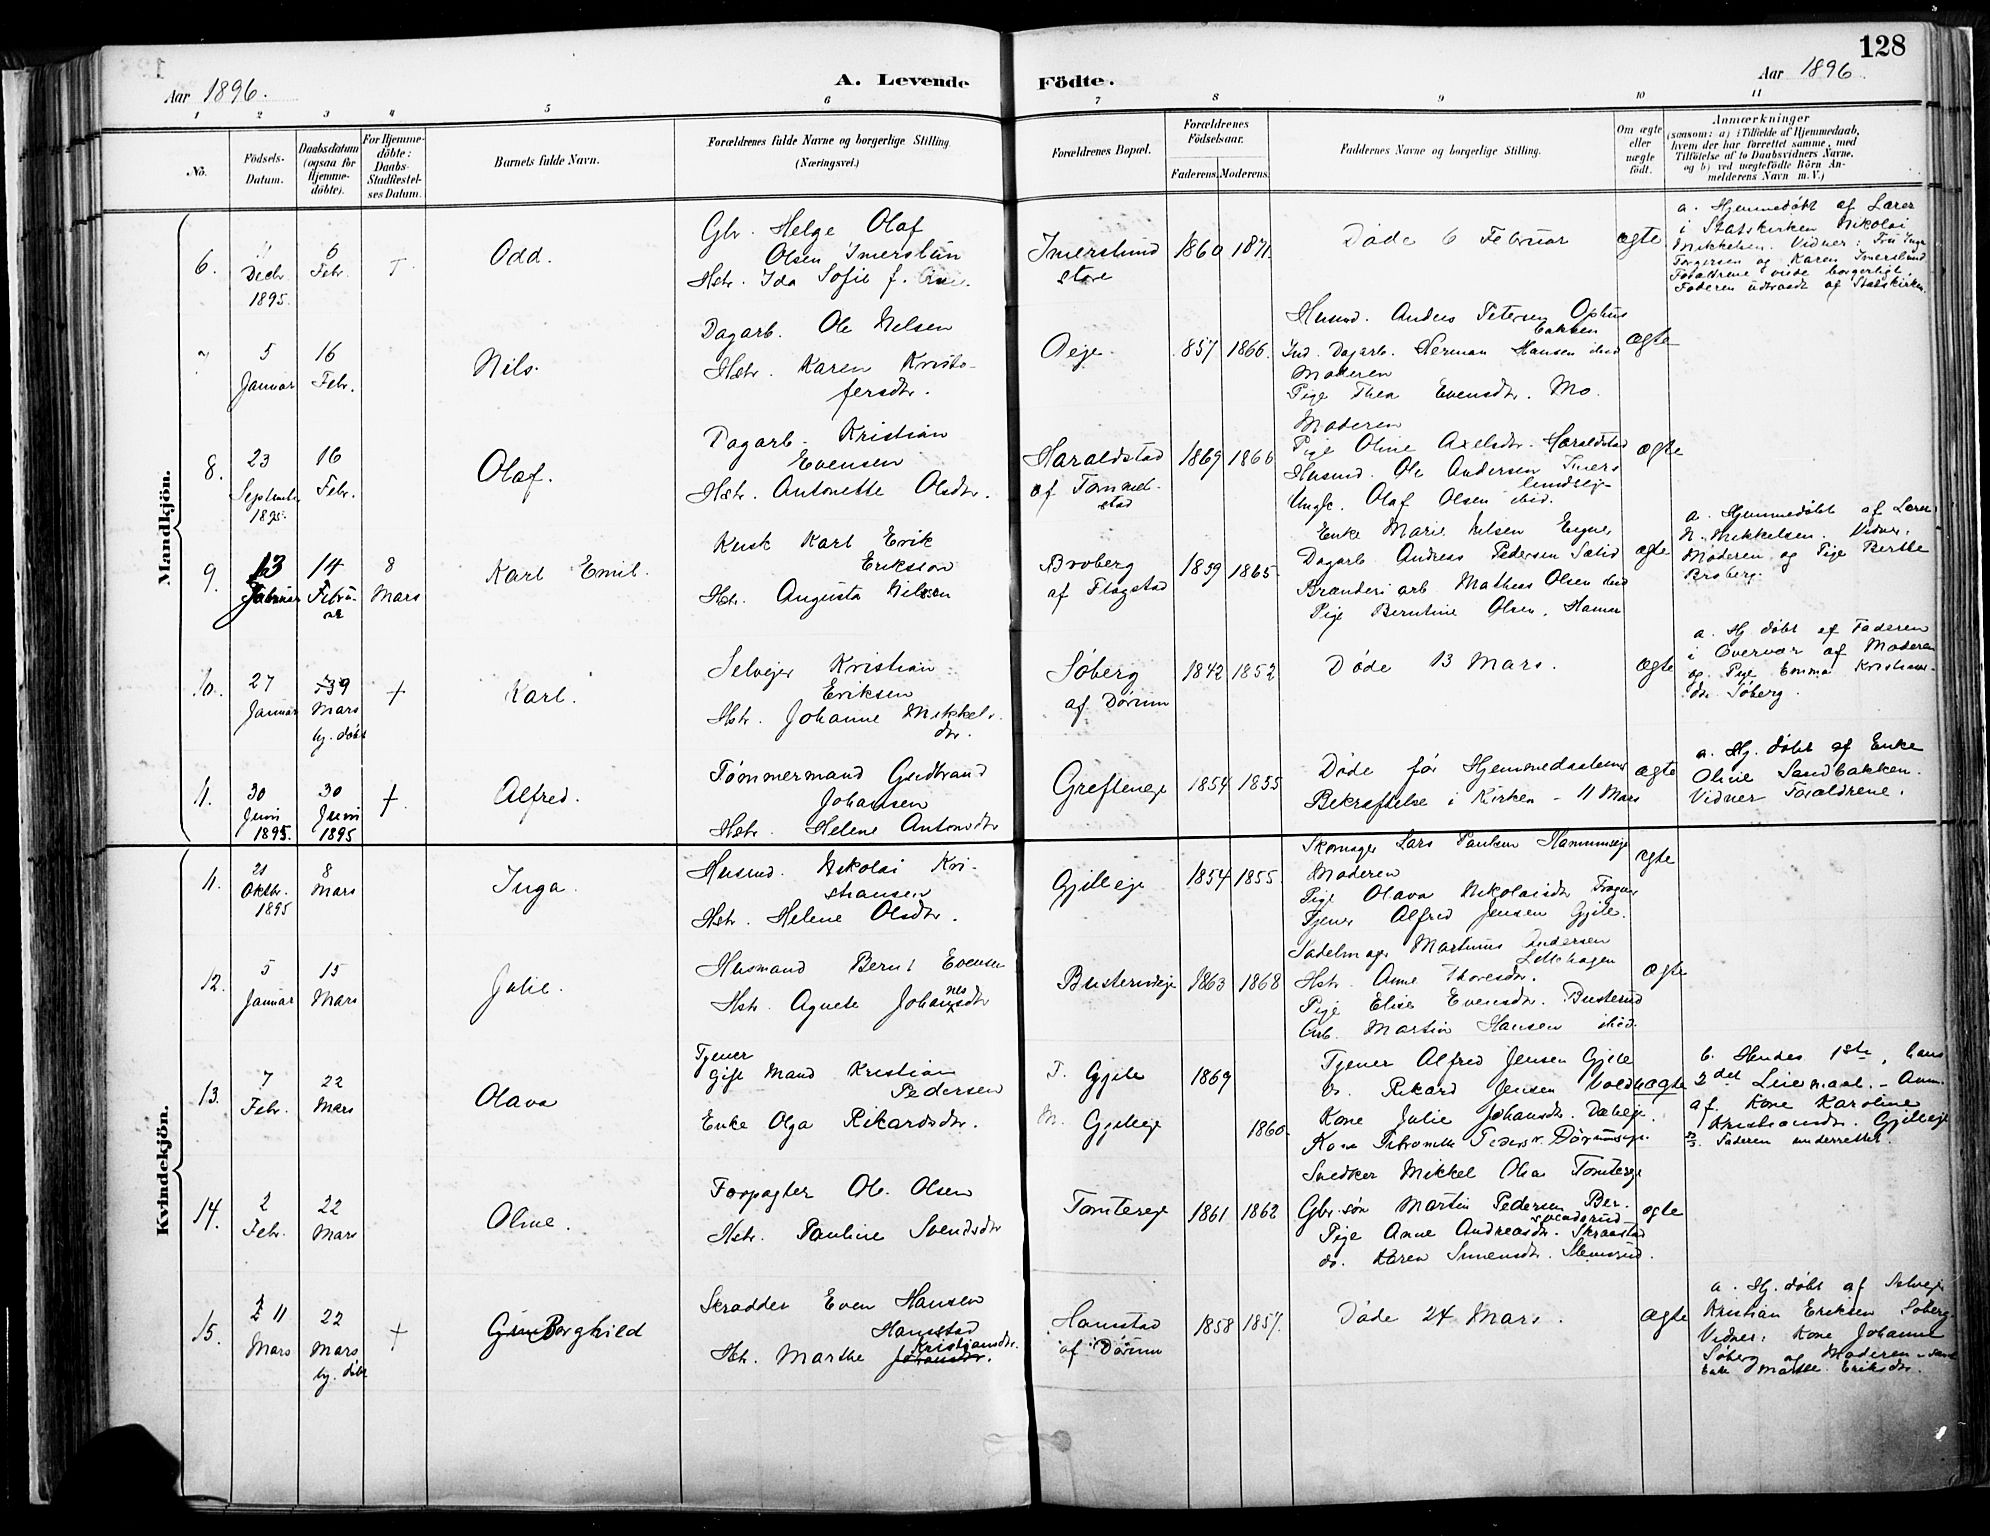 128
Aar 1896.
A. Levende Födte.
Aar 1896
1 2 3 4 5 6 7 8 9 10 11
No.
Födsels-Datum.
Daabsdatum (ogsaa for Hjemme-döbte).
For Hjemme-döbte: Daabs-Stadfæstel-ses Datum.
Barnets fulde Navn.
Forældrenes fulde Navne og borgerlige Stilling
(Næringsvei.)
Forældrenes Bopæl.
Forældrenes Födselsaar.
Faderens. Moderens.
Faddernes Navne og borgerlige Stilling.
Om ægte eller uægte födt.
Anmærkninger
(saasom: a) i Tilfælde af Hjemmedaab,
hvem der har forrettet samme, med
Tilföielse af to Daabsvidners Navne,
og b) ved uægtefödte Börn An-
melderens Navn m. V.)
Mandkjön.
6.
Decbr. 1895.
6 Febr.
Odd.
Gbr. Helge Olaf
Olsen Imerslun
Hstr. Ida Sofie f.
Imerslund
store
1860 1871.
Døde 6 Februar
ægte
a. Hjemmedøbt af Lærer
i Statskirken Nikolai
Mikkelsen. Vidner: Fru Inga
Torgersen og Karen Imerslund
Forældrene viede borgerligt.
Faderen udtraadt af Statskirken.
5 Januar
16 Febr.
Nils.
Dagarb. Ole Nilsen
Hstr. Karen Kristo-
fersdtr.
Oeje.
857 1866.
Husmd. Anders Petersen Ophus
bakken
Ind. Dagarb. Herman Hansen ibid
Moderen
Pige Thea Evensdtr. Mo.
ægte
8.
23 Septembr 1895.
16 Febr.
Olaf.
Dagarb. Kristian
Evensen
Hstr. Antonette Olsdtr.
Haraldstad
af Tommel-
stad
1869 1866
Moderen
Pige Oline Axelsdtr. Haraldstad
Husmd. Ole Andersen Imers
lundseje
Ungk. Olaf Olsen ibid.
ægte
9.
13 Februar
14 Febru-
ar
8 Mars
Karl Emil.
Kusk Karl Erik
Eriksson
Hstr. Augusta Nilsen
Broberg
af Flagstad
1859 1865.
Enke Marie Nilsen
Dagarb. Andreas Pedersen
Brænderiarb Mathias Olsen ibid
Pige Berntine Olsen, Hamar
ægte
a. Hjemmedøbt af Lærer
N. Mikkelsen. Vidner.
Moderen og Pige Berthe
Broberg.
10.
27 Januar
Mars
hj. døbt
+
Karl.
Selvejer Kristian
Eriksen
Hstr. Johanne Mikkels-
dtr.
Søberg
af Dørum
1842 1852
Døde 13 Mars.
ægte
a. Hj. døbt af Faderen
i Overvær af Moderen
og Pige Emma Kristians-
dtr Søberg.
11.
30 Juni 1895.
30 Juni 1895
+
Alfred.
Tømmermand Gudbrand
Johansen
Hstr. Helene Antonsdtr
Grefteneje
1854 1855
Døde før Hjemmedaabens
Bekræftelse i Kirken - 11 Mars
ægte
a. Hj. døbt af Enke
Oline Sandbakken.
Vidner Forældrene.
Kvindekjön.
11.
21 Oktbr. 1895
8 Mars
Inga.
Husmd. Nikolai Kri-
stiansen
Hstr. Helene Olsdtr.
Gjilleje
1854 1855.
Skomager Lars Hammerseje
Moderen
Pige Olava Nikolaisdtr
Tjener Alfred Jensen Gjile.
ægte
12.
5 Januar
15 Mars
Julie.
Husmand Bernt Evensen
Hstr. Agnete Johannesdtr
Busterudeje
1863 1868
Sadelmager Martinus Andersen
Hstr. Anne Thoresdtr.
Pige Elise Evensdtr. Busterud
Arb. Martin Hansen ibid.
ægte
13.
7 Febr.
22 Mars
Olava
Tjener
Gift Mand Kristian
Pedersen
Enke Olga Rikardsdtr.
F. Gjile
M. Gjilleje
1869
1860.
Tjener Alfred Jensen Gjile
Do. Rikard Jensen
Kone Julie Johansdtr.
Kone
uægte
b. Hendes 1ste, hans
2det Leiermaal. - Anm.
af. Kone Karoline
Kristiansdtr. Gjilleeje
Faderen underrettet.
14.
2 Febr.
22 Mars
Oline.
Forpagter Ole Olsen
Hstr. Pauline Svendsdtr
Tomtereje
1861 1862
Snedker Mikkel Olsen Tomtereje
Gbr. søn Martin Pedersen Ber.
svendsrud
Pige Anne Andreasdtr. Skraastad
do. Karen Simensdtr. Slemsrud.
ægte
15.
11 Mars
22 Mars
hj. døbt
+
Borghild
Skrædder Even Hansen
Hamstad
Kristiansdtr.
Hstr. Marthe Johansdtr.
Hamstad
af Dørum
1858 1857.
Døde 24 Mars.
ægte
a. Hj. døbt af Selvejer
Kristian Eriksen Søberg.
Vidner: Kone Johanne
Søberg og Moderen - samt
Enke Marthe Eriksdtr.